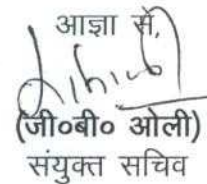 आज्ञा से,
(जी०बी० ओली)
संयुक्त सचिव